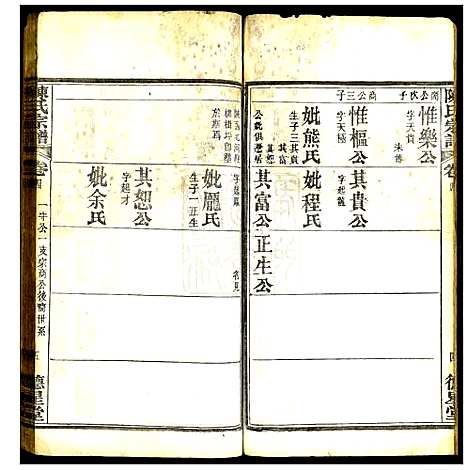 陳氏宗譜
卷四
德星堂
商公次子
惟樂公
字天貴
未善
商公三子
惟樞公
字天極
其貴公
字起龍
妣熊氏
生子三
其貴
其富
妣程氏
其富公
正生公
妣龎氏
生子一正生
其恕公
字起才
妣余氏
陳氏宗譜
卷四
一中公一支宗商公後裔世系
五
德星堂